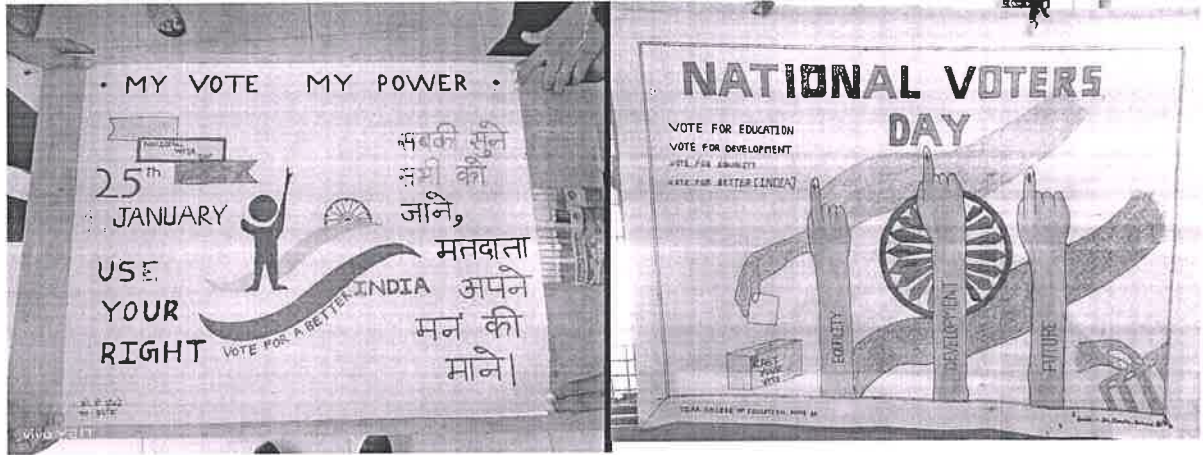 • MY VOTE MY POWER •
NATIONAL
VOTERS
DAY
25th
JANUARY
USE
YOUR
RIGHT
VOTE FOR A BETTER INDIA
सबकी सुने
सभी की
जाने,
मतदाता
अपने
मन की
माने।
vivo
NATIONAL VOTERS
DAY
VOTE FOR EDUCATION
VOTE FOR DEVELOPMENT
VOTE FOR EQUALITY
VOTE FOR BETTER [INDIA]
EQUALITY
DEVELOPMENT
FUTURE
CAST
YOUR
VOTE
COLLEGE OF EDUCATION,